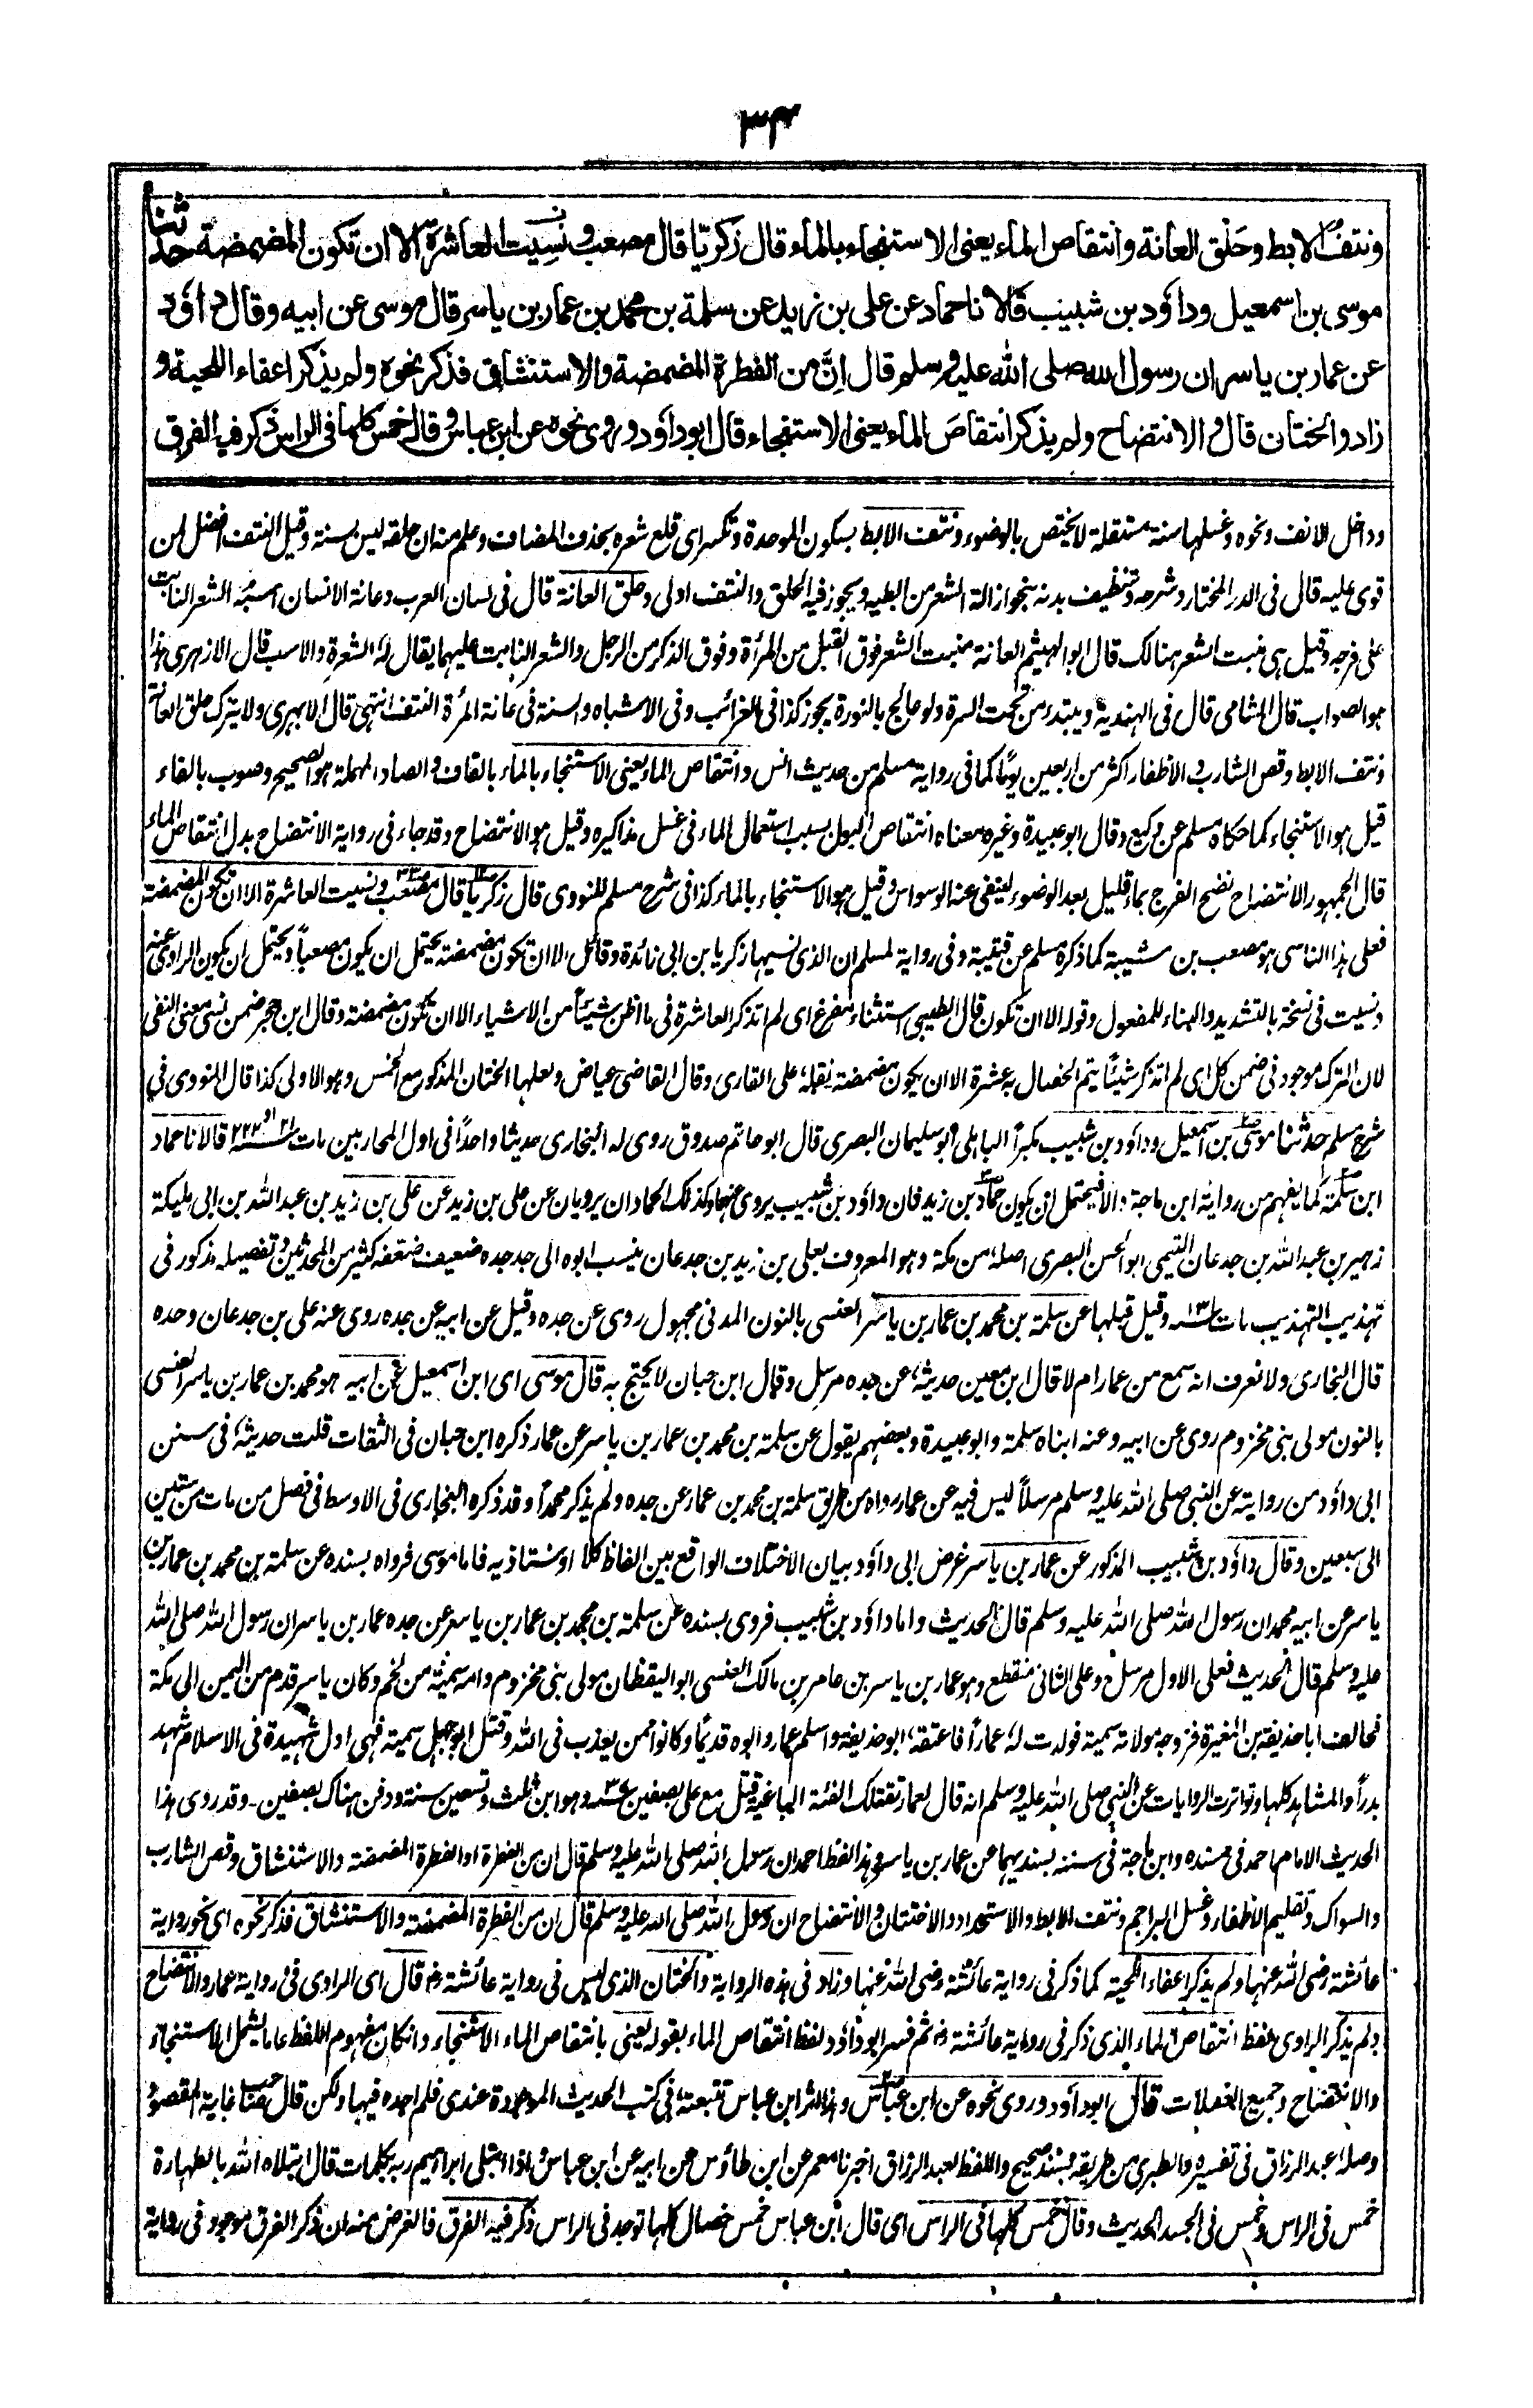 ٣٤
ونتف الابط وحَلْق العانة وانتقاص الماء يعنى الاستنجاء بالماء قال زكريّا قال مصعب ونسِيت العاشرة الا ان تكون المضمضة حدثنا
موسى بن اسمعيل وداؤد بن شبيب قالا نا حماد عن على بن زيد عن سلمة بن محمد بن عمار بن ياسر قال موسى عن ابيه وقال داؤد
عن عمار بن ياسر ان رسول الله صلى الله عليه وسلم قال اِنَّ من الفطرة المضمضة والاستنشاق فذكر نحوه ولم يذكر اعفاء اللحية و
زاد والختان قال والانتضاح ولم يذكر انتقاصَ الماء يعنى الاستنجاء قال ابو داؤد وروى نحوه عن ابن عباس وقال خمس كلها فى الراس ذكر فيه الفرق
وداخل الانف ونحوه وغسلها سنة مستقلة لا يختص بالوضوء ونتف الابط بسكون الموحدة وتكسر اى قلع شعره بحذف المضاف وعلم منه ان حلقه ليس بسنة وقيل النتف افضل لمن
قوى عليه قال فى الدر المختار وشرحه وتنظيف بدنه بنحو ازالة الشعر من ابطيه ويجوز فيه الحلق والنتف اولى وحلق العانة قال فى لسان العرب وعانة الانسان اسبه الشعر النابت
على فرجه وقيل هى منبت الشعر هنالك قال ابو الهيثم العانة منبت الشعر فوق القبل من المرأة وفوق الذكر من الرجل والشعر النابت عليهما يقال له الشعرة والاسب قال الازهرى هذا
هو الصواب قال الشامى قال فى الهندية ويبتدء من تحت السرة ولو عالج بالنورة يجوز كذا فى الغرائب وفى الاشباه والسنة فى عانة المرأة النتف انتهى قال الابهرى ولا يترك حلق العانة
ونتف الابط وقص الشارب والأظفار اكثر من اربعين يومًا كما فى رواية مسلم من حديث انس وانتقاص الماء يعنى الاستنجاء بالماء بالقاف والصاد المهملة هو الصحيح وصوب بالفاء
قيل هو الاستنجاء كما حكاه مسلم عن وكيع وقال ابو عبيدة وغيره معناه انتقاص البول بسبب استعمال الماء فى غسل مذاكيره وقيل هو الانتضاح وقد جاء فى رواية الانتضاح بدل انتقاص الماء
قال الجمهور الانتضاح نضح الفرج بماء قليل بعد الوضوء لينفى عنه الوسواس وقيل هو الاستنجاء بالماء كذا فى شرح مسلم للنووى قال زكريا قال مصعب ونسيت العاشرة الا ان تكون المضمضة
فعلى هذا الناسى هو مصعب بن شيبة كما ذكره مسلم عن قتيبة وفى رواية لمسلم ان الذى نسيها زكريا بن ابى زائدة وقائل الا ان تكون مضمضة يحتمل ان يكون مصعباً ويحتمل ان يكون الراوى عنه
ونسيت فى نسخة بالتشديد والبناء للمفعول وقوله الا ان تكون قال الطيبى استثناء مفرغ اى لم اتذكر العاشرة فى ما اظن شيئًا من الاشياء الا ان تكون مضمضة وقال ابن حجر ضمن نسى معنى النفى
لان الترك موجود فى ضمن كل اى لم اتذكر شيئًا يتم الخصال به عشرة الا ان يكون مضمضة نقله على القارى وقال القاضى عياض ولعلها الختان المذكور مع الخمس وهو الاولى كذا قال النووى فى
شرح مسلم حدثنا موسى بن اسمعيل وداؤد بن شبيب مكبراً الباهلى ابو سليمان البصرى قال ابو حاتم صدوق روى له البخارى حديثا واحدًا فى اول المحاربين مات سنة ٢١ او ٢٢٢ قالا نا حماد
ابن سلمة كما يفهم من رواية ابن ماجة والا فيحتمل ان يكون حماد بن زيد فان داؤد بن شبيب يروى عنهما وكذلك الحمادان يرويان عن على بن زيد عن على بن زيد بن عبد الله بن ابى مليكة
زهير بن عبد الله بن جدعان التيمى ابو الحسن البصرى اصله من مكة وهو المعروف بعلى بن زيد بن جدعان ينسب ابوه الى جد جده ضعيف ضعفه كثير من المحدثين وتفصيله مذكور فى
تهذيب التهذيب مات سنة ١٣١ وقيل قبلها عن سلمة بن محمد بن عمار بن ياسر العنسى بالنون المدنى مجهول روى عن جده وقيل عن ابيه عن جده روى عنه على بن جدعان وحده
قال البخارى ولا نعرف انه سمع من عمار ام لا قال ابن معين حديثه عن جده مرسل وقال ابن حبان لا يحتج به قال موسى اى ابن اسمعيل عن ابيه هو محمد بن عمار بن ياسر العنسى
بالنون مولى بنى مخزوم روى عن ابيه وعنه ابناه سلمة وابو عبيدة وبعضهم يقول عن سلمة بن محمد بن عمار بن ياسر عن عمار ذكره ابن حبان فى الثقات قلت حديثه فى سنن
ابى داؤد من روايته عن النبى صلى الله عليه وسلم مرسلاً ليس فيه عن عمار رواه من طريق سلمة بن محمد بن عمار عن جده ولم يذكر محمداً وقد ذكره البخارى فى الاوسط فى فصل من مات من ستين
الى سبعين وقال داؤد بن شبيب المذكور عن عمار بن ياسر غرض ابى داؤد بيان الاختلاف الواقع بين الفاظ كلا استاذيه فاما موسى فرواه بسنده عن سلمة بن محمد بن عمار بن
ياسر عن ابيه محمد ان رسول الله صلى الله عليه وسلم قال الحديث واما داؤد بن شبيب فروى بسنده عن سلمة بن محمد بن عمار بن ياسر عن جده عمار بن ياسر ان رسول الله صلى الله
عليه وسلم قال الحديث فعلى الاول مرسل وعلى الثانى منقطع وهو عمار بن ياسر بن عامر بن مالك العنسى ابو اليقظان مولى بنى مخزوم وامه سمية من لخم وكان ياسر قدم من اليمن الى مكة
فحالف ابا حذيفة بن المغيرة فزوجه مولاته سمية فولدت له عماراً فاعتقه ابو حذيفة واسلم عمار وابوه قديمًا وكانوا ممن يعذب فى الله وقتل ابو جهل سمية فهى اول شهيدة فى الاسلام شهد
بدراً والمشاهد كلها وتواترت الروايات عن النبى صلى الله عليه وسلم انه قال لعمار تقتلك الفئة الباغية قتل مع على بصفين سنة ٣٧ وهو ابن ثلث وتسعين سنة ودفن هناك بصفين۔ وقد روى هذا
الحديث الامام احمد فى مسنده وابن ماجة فى سننه بسنديهما عن عمار بن ياسر وهذا لفظ احمد ان رسول الله صلى الله عليه وسلم قال ان من الفطرة او الفطرة المضمضة والاستنشاق وقص الشارب
والسواك وتقليم الأظفار وغسل البراجم ونتف الابط والاستحداد والاختتان والانتضاح ان رسول الله صلى الله عليه وسلم قال ان من الفطرة المضمضة والاستنشاق فذكر نحوه اى نحو رواية
عائشة رضى الله عنها ولم يذكر اعفاء اللحية كما ذكر فى رواية عائشة رضى الله عنها وزاد فى هذه الرواية والختان الذى ليس فى رواية عائشة رض قال اى الراوى فى رواية عمار والانتضاح
ولم يذكر الراوى لفظ انتقاص الماء الذى ذكر فى رواية عائشة رض ثم فسر ابو داؤد لفظ انتقاص الماء بقوله يعنى بانتقاص الماء الاستنجاء وانكان مفهوم اللفظ عاما يشمل الاستنجاء
والانتضاح وجميع الغسلات قال ابو داؤد وروى نحوه عن ابن عباس وهذا اثر ابن عباس تتبعته فى كتب الحديث الموجودة عندى فلم اجده فيها ولكن قال صاحب غاية المقصود
وصله عبد الرزاق فى تفسيره والطبرى من طريقه بسند صحيح واللفظ لعبد الرزاق اخبرنا معمر عن ابن طاؤس عن ابيه عن ابن عباس واذا ابتلى ابراهيم ربه بكلمات قال ابتلاه الله بالطهارة
خمس فى الراس وخمس فى الجسد الحديث وقال خمس كلها فى الراس اى قال ابن عباس خمس خصال كلها توجد فى الراس ذكر فيه الفرق فالغرض منه ان ذكر الفرق موجود فى رواية